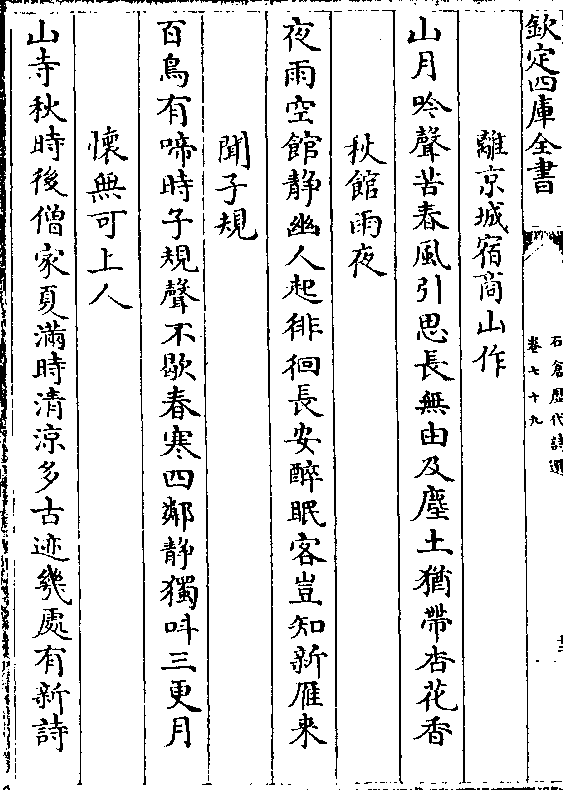 欽定四庫全書
石倉歷代詩選
卷七十九
離京城宿商山作
山月吟聲苦春風引思長無由及塵土猶帶杏花香
秋館雨夜
夜雨空館静幽人起徘徊長安醉眠客豈知新雁来
聞子規
百鳥有啼時子規聲不歇春寒四鄰静獨呌三更月
懷無可上人
山寺秋時後僧家夏滿時清涼多古迹幾處有新詩